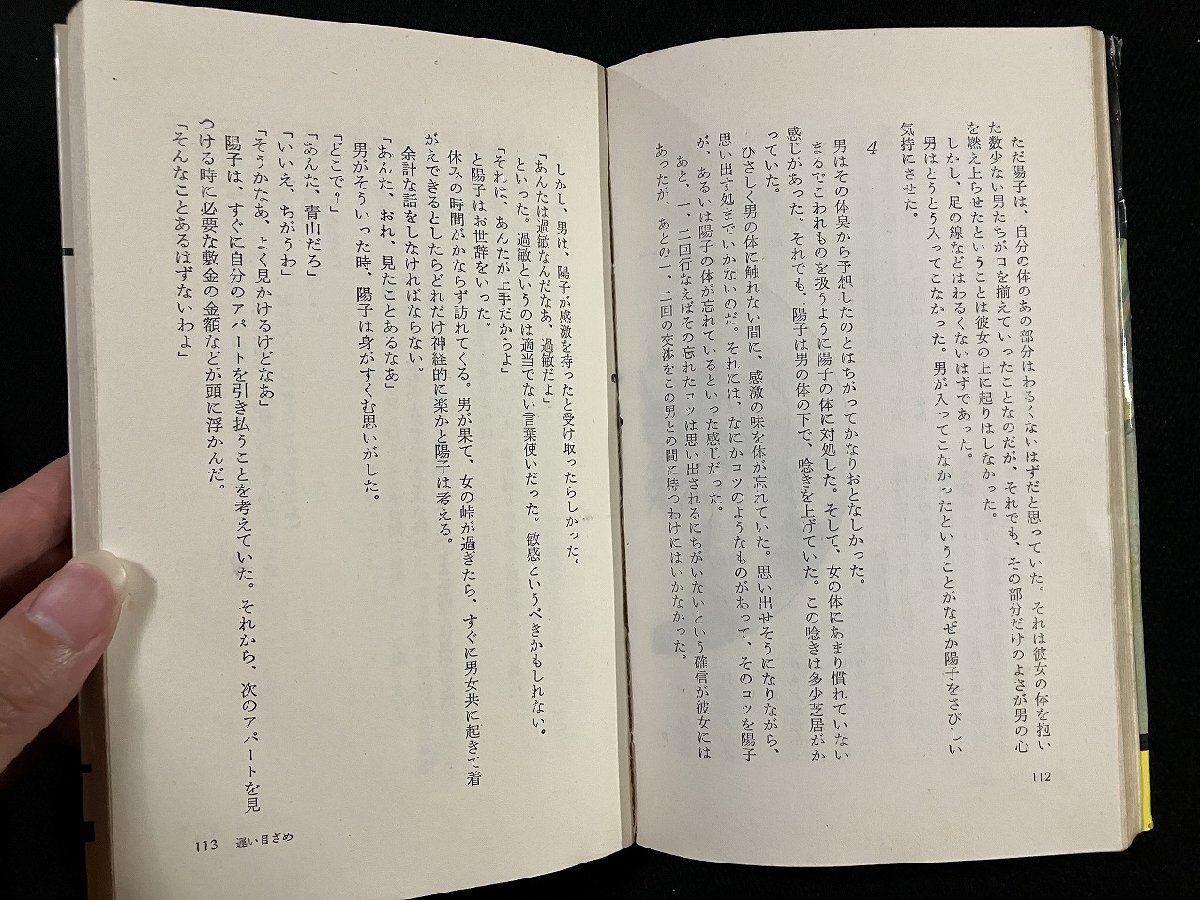 ただ陽子は、自分の体のあの部分はわるくないはずだと思っていた。それは彼女の体を抱い
た数少ない男たちがコを揃えていったことなのだが、それでも、その部分だけのよさが男の心
を燃え上らせたということは彼女の上に起りはしなかった。
しかし、足の線などはわるくないはずであった。
男はとうとう入ってこなかった。男が入ってこなかったということがなぜか陽子をさびしい
気持にさせた。
4
男はその体臭から予想したのとはちがってかなりおとなしかった。
まるでこわれものを扱うように陽子の体に対処した。そして、女の体にあまり慣れていない
感じがあった。それでも、陽子は男の体の下で、唸きを上げていた。この唸きは多少芝居がか
っていた。
ひさしく男の体に触れない間に、感激の味を体が忘れていた。思い出せそうになりながら、
思い出す処までいかないのだ。それには、なにかコツのようなものがあって、そのコツを陽子
が、あるいは陽子の体が忘れているといった感じだった。
あと、一、二回行なえばその忘れたコツは思い出されるにちがいないという確信が彼女には
あったが、あとの一、二回の交渉をこの男との間に持つわけにはいかなかった。
112
しかし、男は、陽子が感激を持ったと受け取ったらしかった。
「あんたは過敏なんだなあ、過敏だよ」
といった。過敏というのは適当でない言葉使いだった。敏感というべきかもしれない。
「それは、あんたが上手だからよ」
と陽子はお世辞をいった。
休みの時間がかならず訪れてくる。男が果て、女の峠が過ぎたら、すぐに男女共に起きて着
がえできるとしたらどれだけ神経的に楽かと陽子は考える。
余計な話をしなければならない。
「あんた、おれ、見たことあるなあ」
男がそういった時、陽子は身がすくむ思いがした。
「どこで？」
「あんた、青山だろ」
「いいえ、ちがうわ」
「そうかなあ、よく見かけるけどなあ」
陽子は、すぐに自分のアパートを引き払うことを考えていた。それから、次のアパートを見
つける時に必要な敷金の金額などが頭に浮かんだ。
「そんなことあるはずないわよ」
113 遅い目ざめ